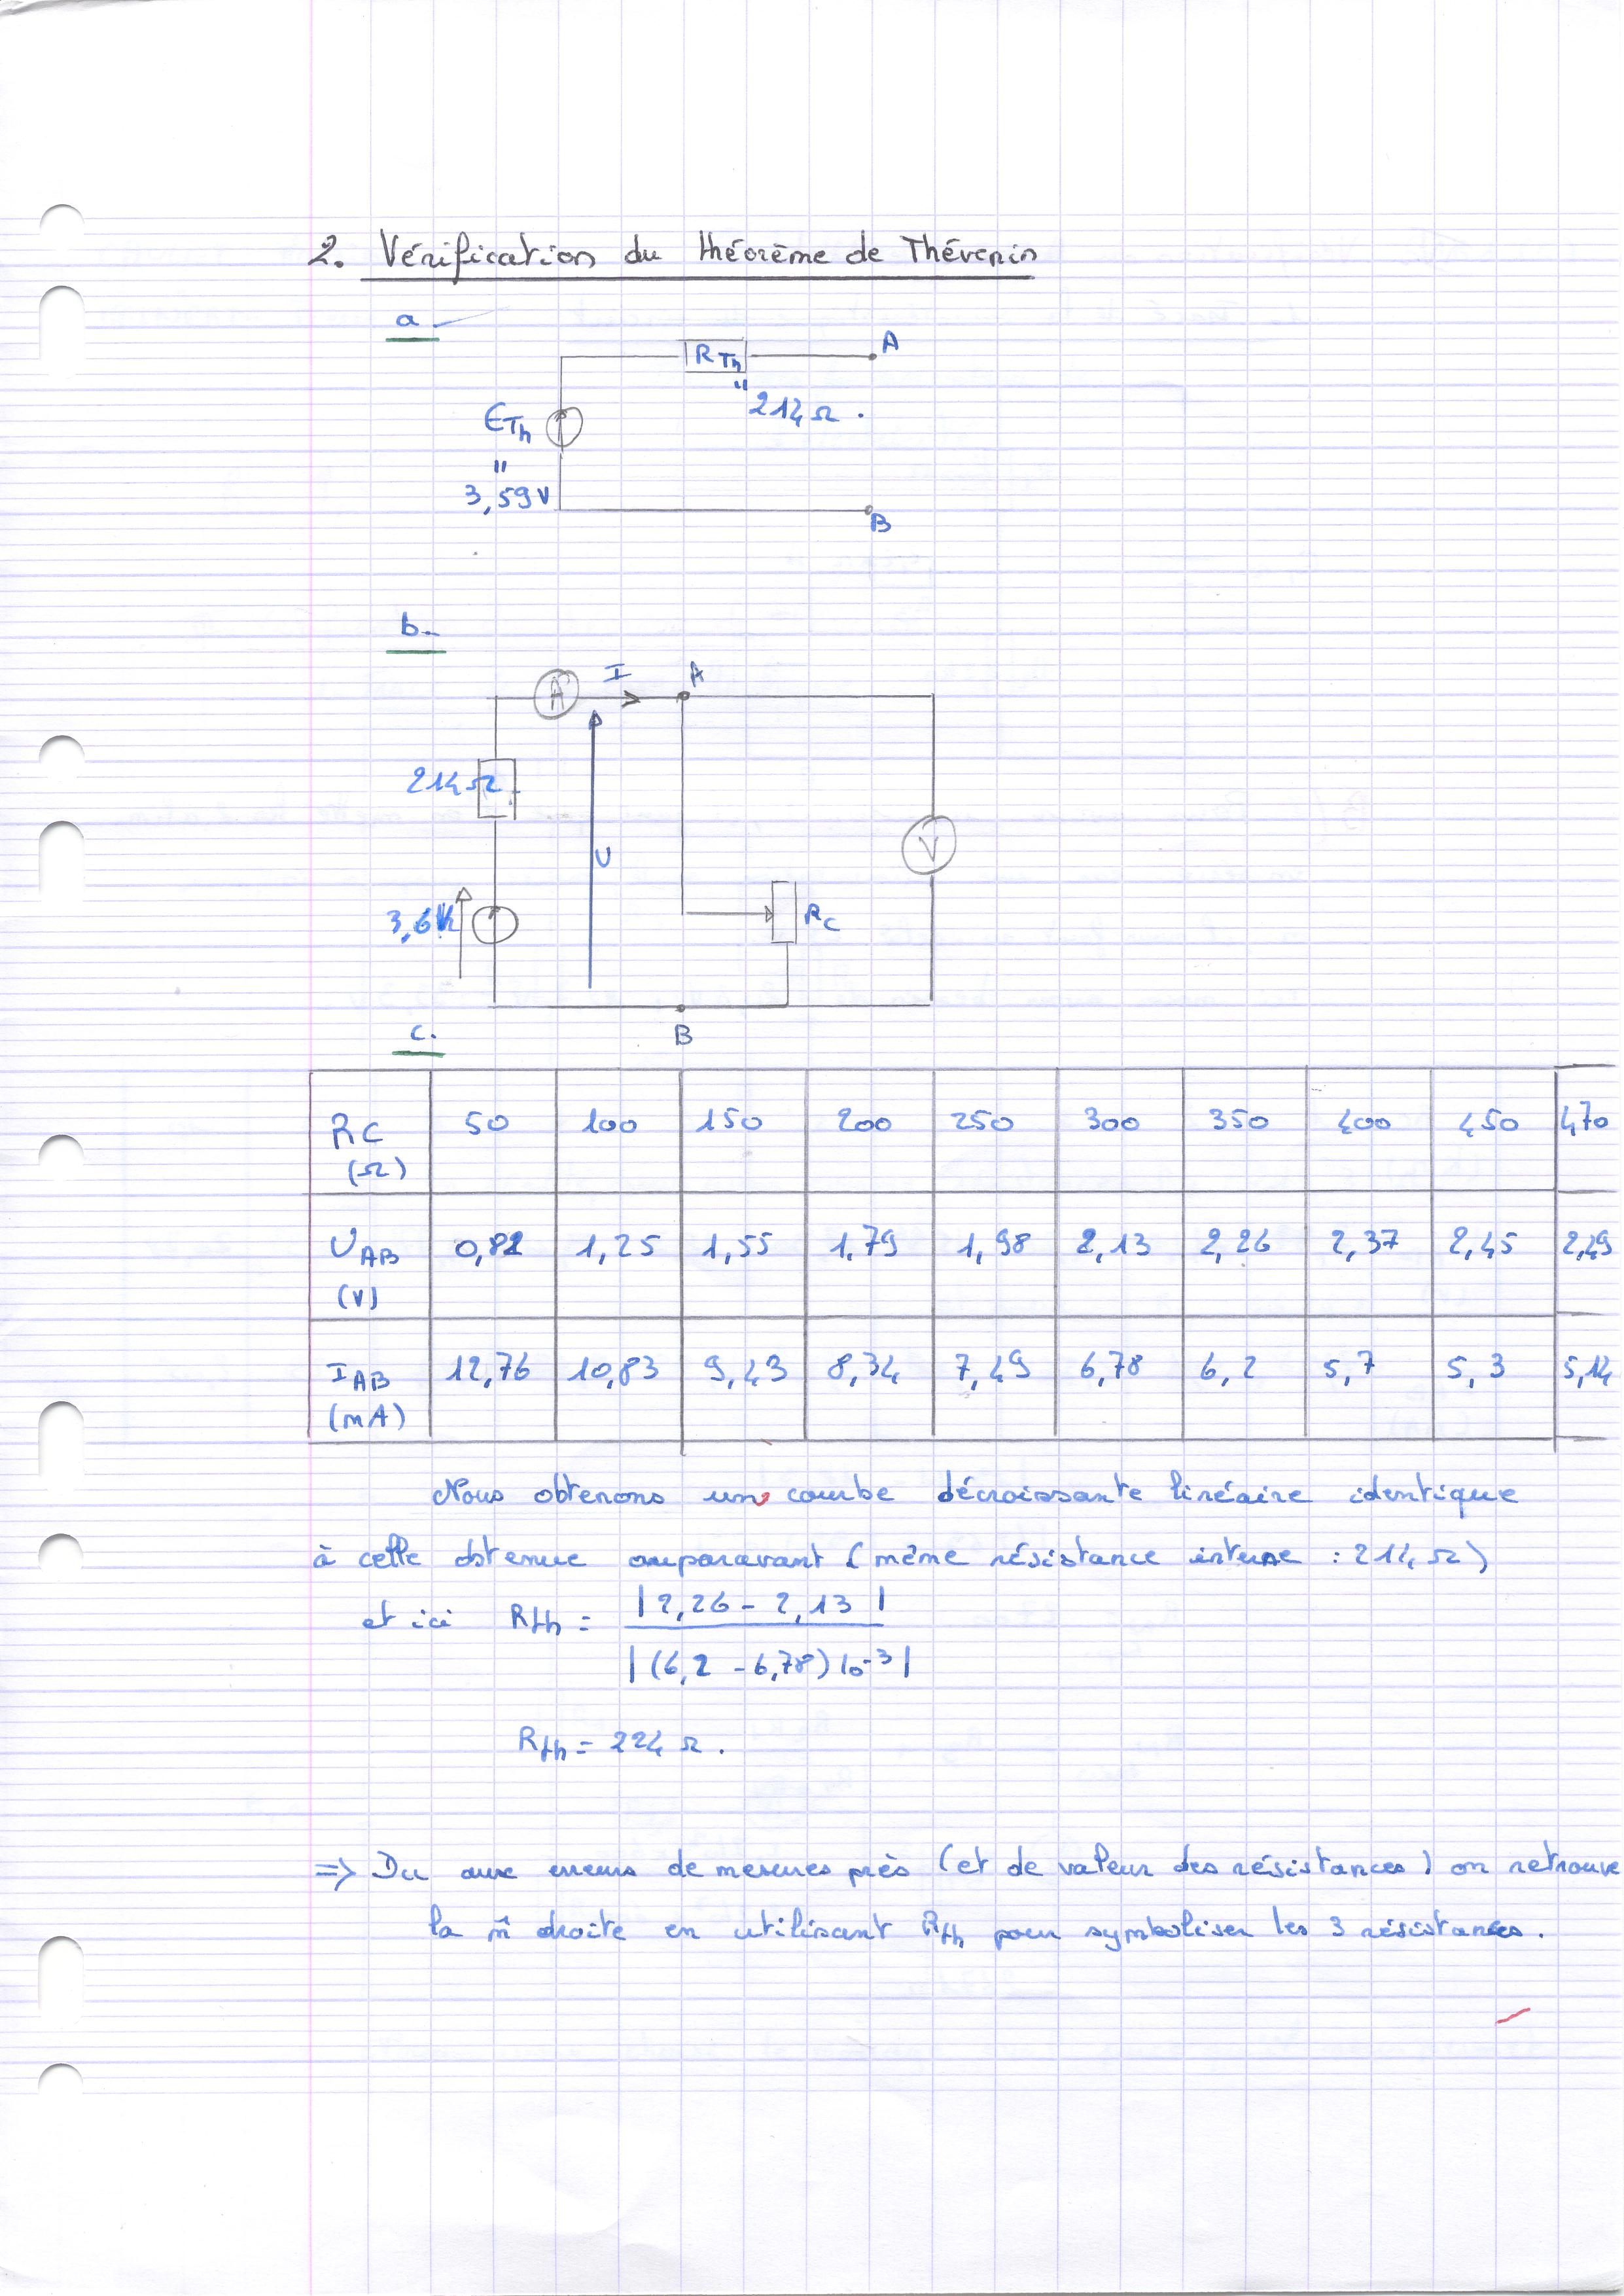 2. Vérification du théorème de Thévenin
a -
RTh
A
"
214 Ω .
ETh
"
3,59V
B
b-
A
I
A
214 Ω
U
V
3,6V
RC
B
c.
RC (Ω) 50 100 150 200 250 300 350 400 450 470
UAB (V) 0,82 1,25 1,55 1,79 1,98 2,13 2,26 2,37 2,45 2,49
IAB (mA) 12,76 10,83 9,43 8,34 7,49 6,78 6,2 5,7 5,3 5,14
Nous obtenons un courbe décroissante linéaire identique
à celle obtenue auparavant (même résistance interne : 214 Ω)
et ici Rth = |2,26 - 2,13| / |(6,2 - 6,78) 10-3|
Rth = 224 Ω .
=> Du aux erreurs de mesures près (et de valeur des résistances) on retrouve
la m̂ droite en utilisant Rth pour symboliser les 3 résistances.